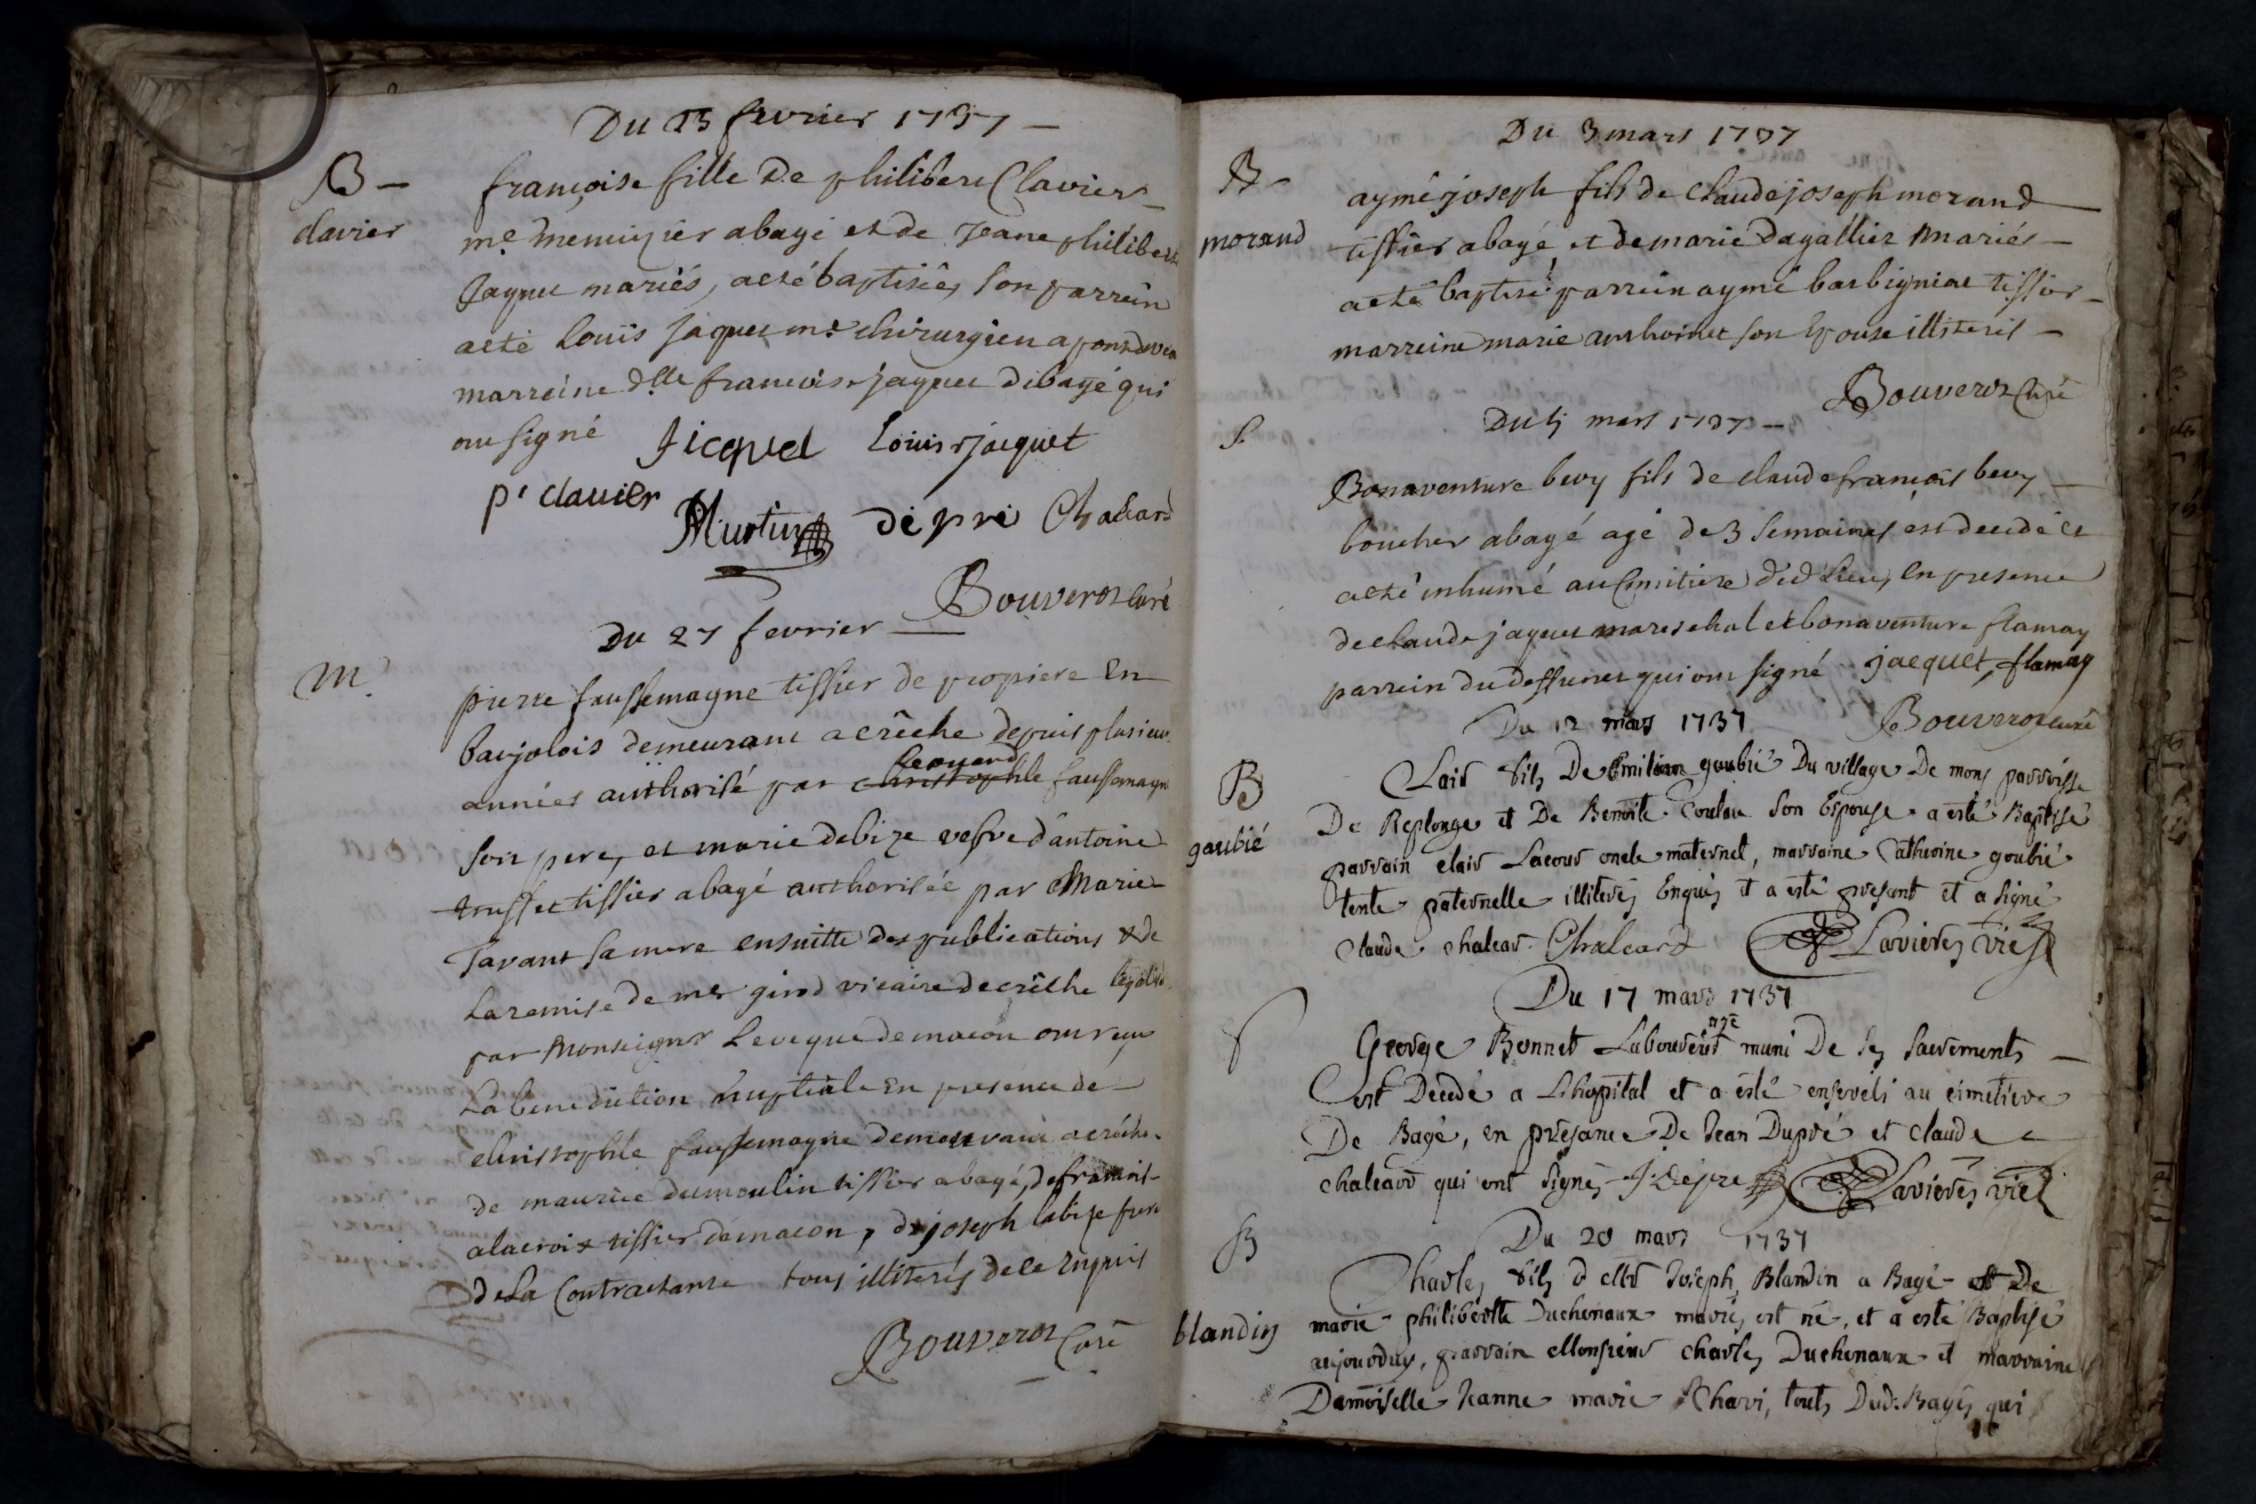 Du 23 fevrier 1737 –
B –
clavier
françoise fille De philibert Clavier –
me menuizier abagé et de Jeane philiberte
Jaquet mariés, aeté baptisée, son parrein
aeté Louïs Jaquet me chirurgien apondeveau
marreine dlle francoise jaquet dibagé qui
ont signé Jicquel Louis jacquet
pr clavier
Martin dépré Chaleard
Bouverot curé
Du 27 fevrier –
M.
pierre faussemagne tissier de propiere en
baujolois demeurant a crêche depuis plusieurs
Leonard
années authorisé par christophle faussemagne
son pere, et marie debize vefve d'antoine
trusset tissier abagé authorisée par Marie
Tavant sa mere ensuitte des publications & de
La remise de mr girod vicaire de crêche legalisé
par Monseigr Leveque de macon ont reçu
La benediction nuptiale en presence de
christophle faussemagne demeurant a crêche
de maurice dumoulin tissier abagé, de francois
alacroix tissier de macon, de joseph labize frere
de La Contractante tous illiterés de ce Enquis
Bouverot Curé
Du 3 mars 1737
B –
morand
aymé joseph fils de claude joseph morand
tissier abagé, et de marie dagallier mariés –
aeté baptisé parrein aymé barbigniat tissier –
marreine marie anthoinet son Epouse illiterés –
Bouverot Curé
Du 5 mars 1737 –
S.
Bonaventure bevy fils de claude françois bevy –
boucher abagé agé de 3 semaines est decedé et
aeté inhumé au Cimitiere dud Lieu, en presence
de claude jaquet mareschal et bonaventure flamay
parrein du deffunct qui ont signé jacquet, flamay
Bouverot curé
Du 12 mars 1737
B
gaubié
Clair fils De Emilian goubié Du village De mons parroisse
De Replonge et De Benoite Coulon Son Espouse a esté Baptisé
parrain clair Lacour oncle maternel, marraine Catherine goubié
tente paternelle illiterés Enquis et a esté present et a signé
Claude chalear Chaleard Lavieres vic
Du 17 mars 1737
S
agé
George Bonnet Laboureur muni De ses sacrements –
est Decedé a L'hopital et a esté enseveli au cimetiere
De Bagé, en presance De Jean Dupré et claude
chalear qui ont signés J. dépre Lavieres vic
Du 20 mars 1737
B
blandin
Charles fils d Mr Joseph Blandin a Bagé et De
marie philiberte Duchenaux mariés est né, et a esté Baptisé
aujourduy, parrain Monsieur charles Duchenaux et marraine
Damoiselle Jeanne marie Charvi, touts Dud. Bagé, qui